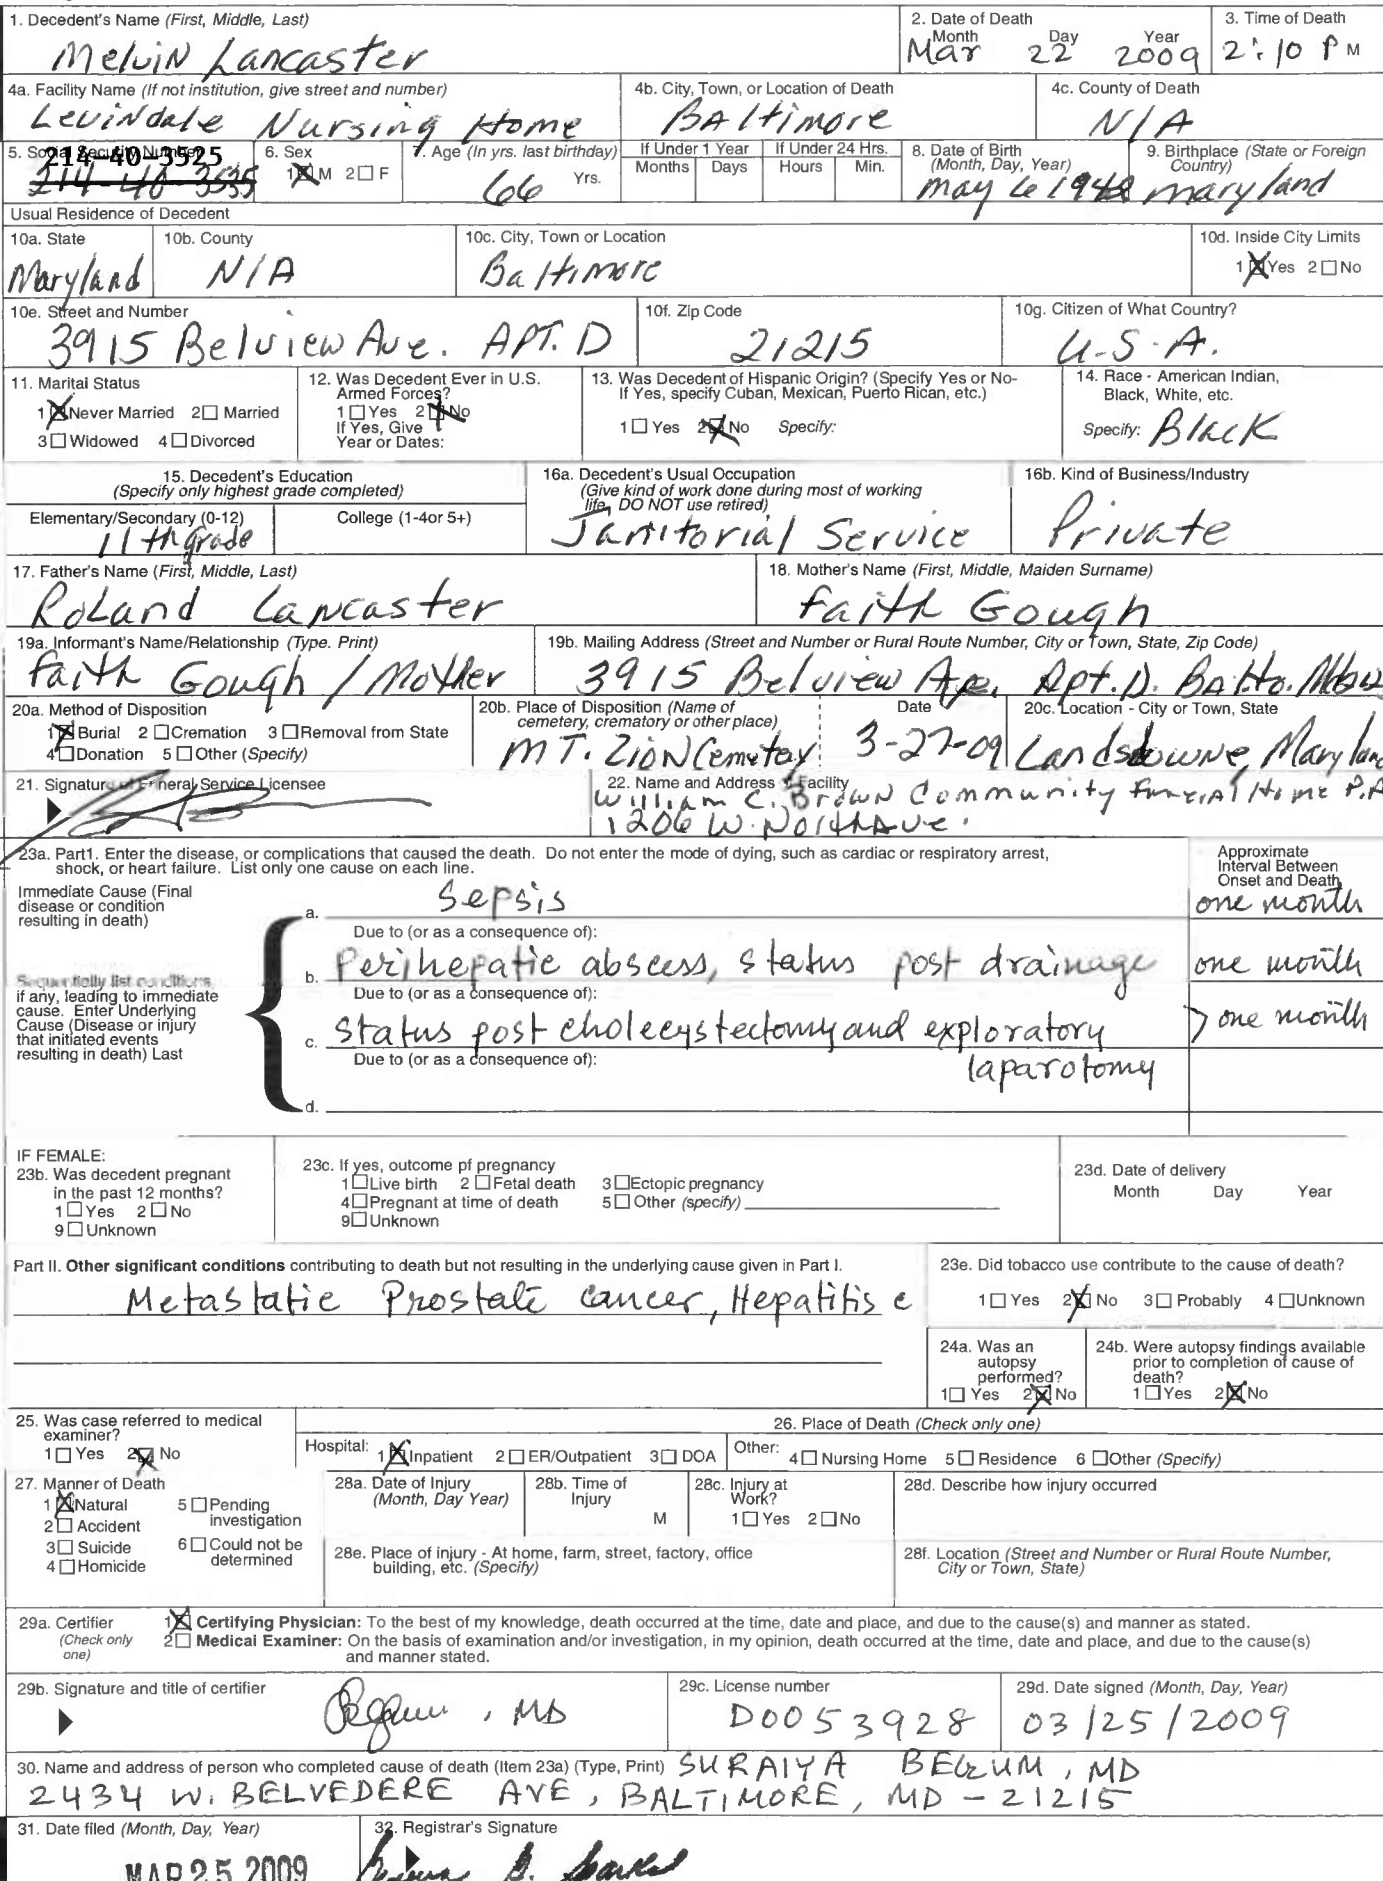 1. Decedent's Name (First, Middle, Last)
Melvin Lancaster
2. Date of Death
Month Day Year
Mar 22 2009
3. Time of Death
2:10 P M
4a. Facility Name (If not institution, give street and number)
Levindale Nursing Home
4b. City, Town, or Location of Death
Baltimore
4c. County of Death
N/A
5. Social Security Number
214-40-3525
214-40-3535
6. Sex
1☒ M 2☐ F
7. Age (In yrs. last birthday)
66 Yrs.
If Under 1 Year
Months Days
If Under 24 Hrs.
Hours Min.
8. Date of Birth
(Month, Day, Year)
may 6 194
9. Birthplace (State or Foreign
Country)
maryland
Usual Residence of Decedent
10a. State
Maryland
10b. County
N/A
10c. City, Town or Location
Baltimore
10d. Inside City Limits
1☒Yes 2☐No
10e. Street and Number
3915 Belview Ave. APT. D
10f. Zip Code
21215
10g. Citizen of What Country?
U.S.A.
11. Marital Status
1☒Never Married 2☐ Married
3☐Widowed 4☐Divorced
12. Was Decedent Ever in U.S.
Armed Forces?
1☐Yes 2☒No
If Yes, Give
Year or Dates:
13. Was Decedent of Hispanic Origin? (Specify Yes or No-
If Yes, specify Cuban, Mexican, Puerto Rican, etc.)
1☐Yes 2☒No Specify:
14. Race - American Indian,
Black, White, etc.
Specify: Black
15. Decedent's Education
(Specify only highest grade completed)
Elementary/Secondary (0-12)
11th grade
College (1-4or 5+)
16a. Decedent's Usual Occupation
(Give kind of work done during most of working
life, DO NOT use retired)
Janitorial Service
16b. Kind of Business/Industry
Private
17. Father's Name (First, Middle, Last)
Roland Lancaster
18. Mother's Name (First, Middle, Maiden Surname)
Faith Gough
19a. Informant's Name/Relationship (Type. Print)
Faith Gough / Mother
19b. Mailing Address (Street and Number or Rural Route Number, City or Town, State, Zip Code)
3915 Belview Ave. Apt. D. Balto.
20a. Method of Disposition
1☒Burial 2☐Cremation 3☐Removal from State
4☐Donation 5☐Other (Specify)
20b. Place of Disposition (Name of
cemetery, crematory or other place)
MT. Zion Cemetary
Date
3-27-09
20c. Location - City or Town, State
Landsdowne, Maryland
21. Signature of Funeral Service Licensee
22. Name and Address of Facility
William C. Brown Community Funeral Home P.A
1206 W. North Ave.
23a. Part1. Enter the disease, or complications that caused the death. Do not enter the mode of dying, such as cardiac or respiratory arrest,
shock, or heart failure. List only one cause on each line.
Approximate
Interval Between
Onset and Death
Immediate Cause (Final
disease or condition
resulting in death)
a. Sepsis
one month
Due to (or as a consequence of):
b. Perihepatic abscess, status post drainage
one month
Sequentially list conditions,
if any, leading to immediate
cause. Enter Underlying
Cause (Disease or injury
that initiated events
resulting in death) Last
Due to (or as a consequence of):
c. status post cholecystectomy and exploratory
laparotomy
> one month
Due to (or as a consequence of):
d.
IF FEMALE:
23b. Was decedent pregnant
in the past 12 months?
1☐Yes 2☐No
9☐Unknown
23c. If yes, outcome pf pregnancy
1☐Live birth 2☐Fetal death 3☐Ectopic pregnancy
4☐Pregnant at time of death 5☐Other (specify)
9☐Unknown
23d. Date of delivery
Month Day Year
Part II. Other significant conditions contributing to death but not resulting in the underlying cause given in Part I.
Metastatic Prostate cancer, Hepatitis c
23e. Did tobacco use contribute to the cause of death?
1☐Yes 2☒No 3☐Probably 4☐Unknown
24a. Was an
autopsy
performed?
1☐Yes 2☒No
24b. Were autopsy findings available
prior to completion of cause of
death?
1☐Yes 2☒No
25. Was case referred to medical
examiner?
1☐Yes 2☒No
26. Place of Death (Check only one)
Hospital: 1☒Inpatient 2☐ER/Outpatient 3☐DOA
Other: 4☐Nursing Home 5☐Residence 6☐Other (Specify)
27. Manner of Death
1☒Natural 5☐Pending
investigation
2☐Accident
3☐Suicide 6☐Could not be
determined
4☐Homicide
28a. Date of Injury
(Month, Day Year)
28b. Time of
Injury
M
28c. Injury at
Work?
1☐Yes 2☐No
28d. Describe how injury occurred
28e. Place of injury - At home, farm, street, factory, office
building, etc. (Specify)
28f. Location (Street and Number or Rural Route Number,
City or Town, State)
29a. Certifier
(Check only
one)
1☒ Certifying Physician: To the best of my knowledge, death occurred at the time, date and place, and due to the cause(s) and manner as stated.
2☐ Medical Examiner: On the basis of examination and/or investigation, in my opinion, death occurred at the time, date and place, and due to the cause(s)
and manner stated.
29b. Signature and title of certifier
Begum, MD
29c. License number
D0053928
29d. Date signed (Month, Day, Year)
03/25/2009
30. Name and address of person who completed cause of death (Item 23a) (Type, Print) SURAIYA BEGUM, MD
2434 W. BELVEDERE AVE, BALTIMORE, MD - 21215
31. Date filed (Month, Day, Year)
MAR 25 2009
32. Registrar's Signature